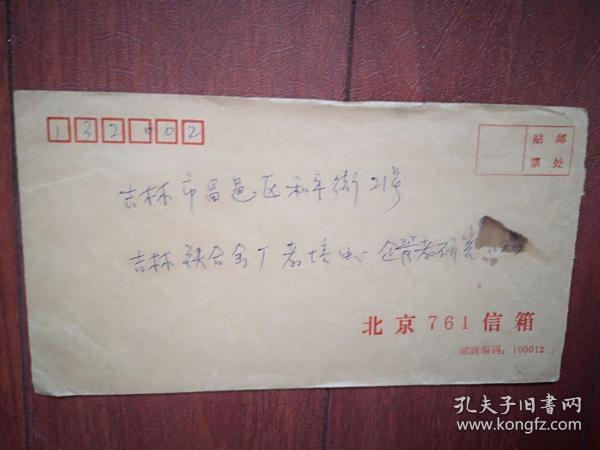 132002
贴邮
票处
吉林市昌邑区和平街21号
吉林铁合金厂教培中心 企管教研室
北京761信箱
邮政编码：100012
孔夫子旧书网
www.kongfz.com